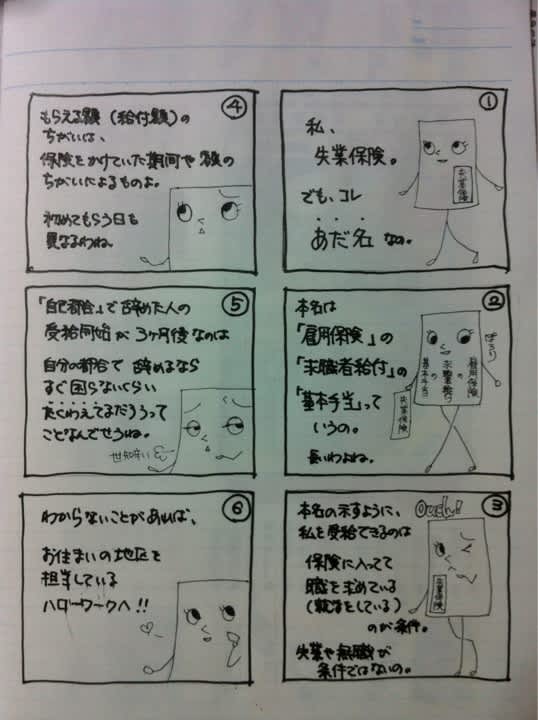 ①
私、
失業保険。
でも、コレ
あだ名 なの。
失業保険
②
本名は
「雇用保険」の
「求職者給付」の
「基本手当」って
いうの。
長いわよね。
ぽろり
雇用保険
の
求職者給付
の
基本手当
失業保険
③
Ouch!
本名の示すように、
私を受給できるのは
保険に入ってて
職を求めている
(就活をしている)
のが条件。
失業や無職が
条件ではないの。
失業保険
④
もらえる額(給付額)の
ちがいは、
保険をかけていた期間や額の
ちがいによるものよ。
初めてもらう日も
異なるわね。
⑤
「自己都合」で辞めた人の
受給開始が3ヶ月後なのは
自分の都合で辞めるなら
すぐ困らないくらい
たくわえてまだろうって
ことなんでせうね。
世知辛い
⑥
わからないことがあれば、
お住まいの地区を
担当している
ハローワークへ!!